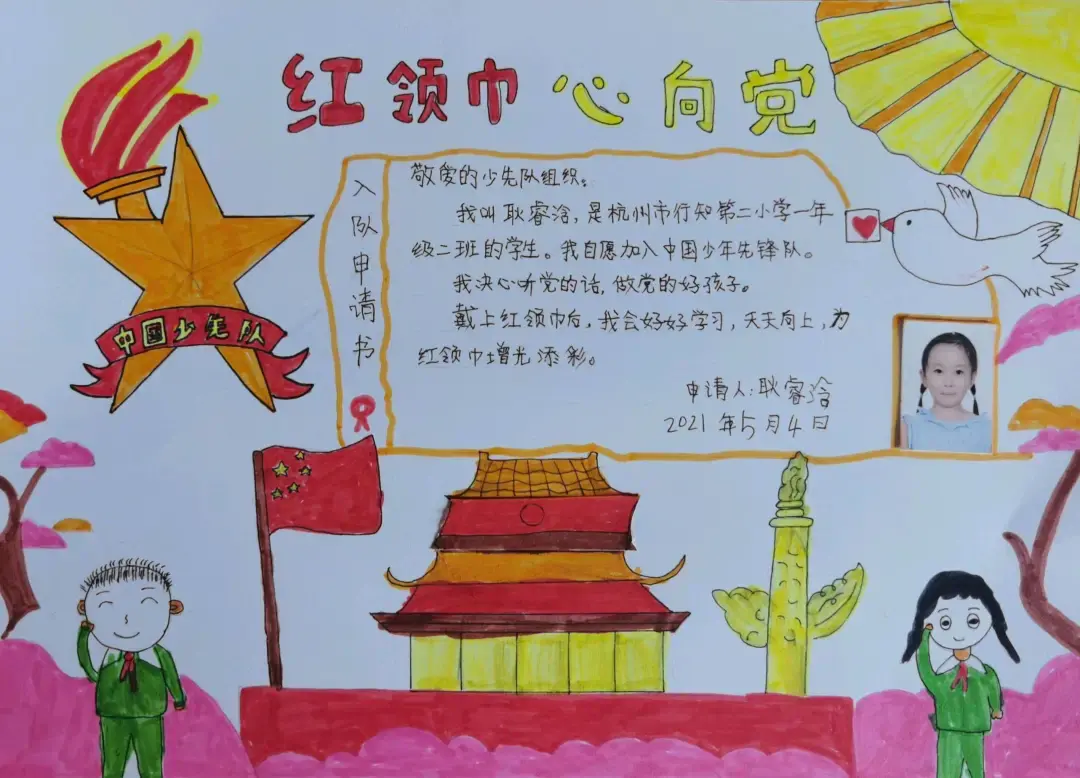 红领巾心向党
入队申请书
敬爱的少先队组织。
我叫耿睿浛，是杭州市行知第二小学一年
级二班的学生。我自愿加入中国少年先锋队。
我决心听党的话，做党的好孩子。
戴上红领巾后，我会好好学习，天天向上，为
红领巾增光添彩。
申请人：耿睿浛
2021年5月4日
中国少先队